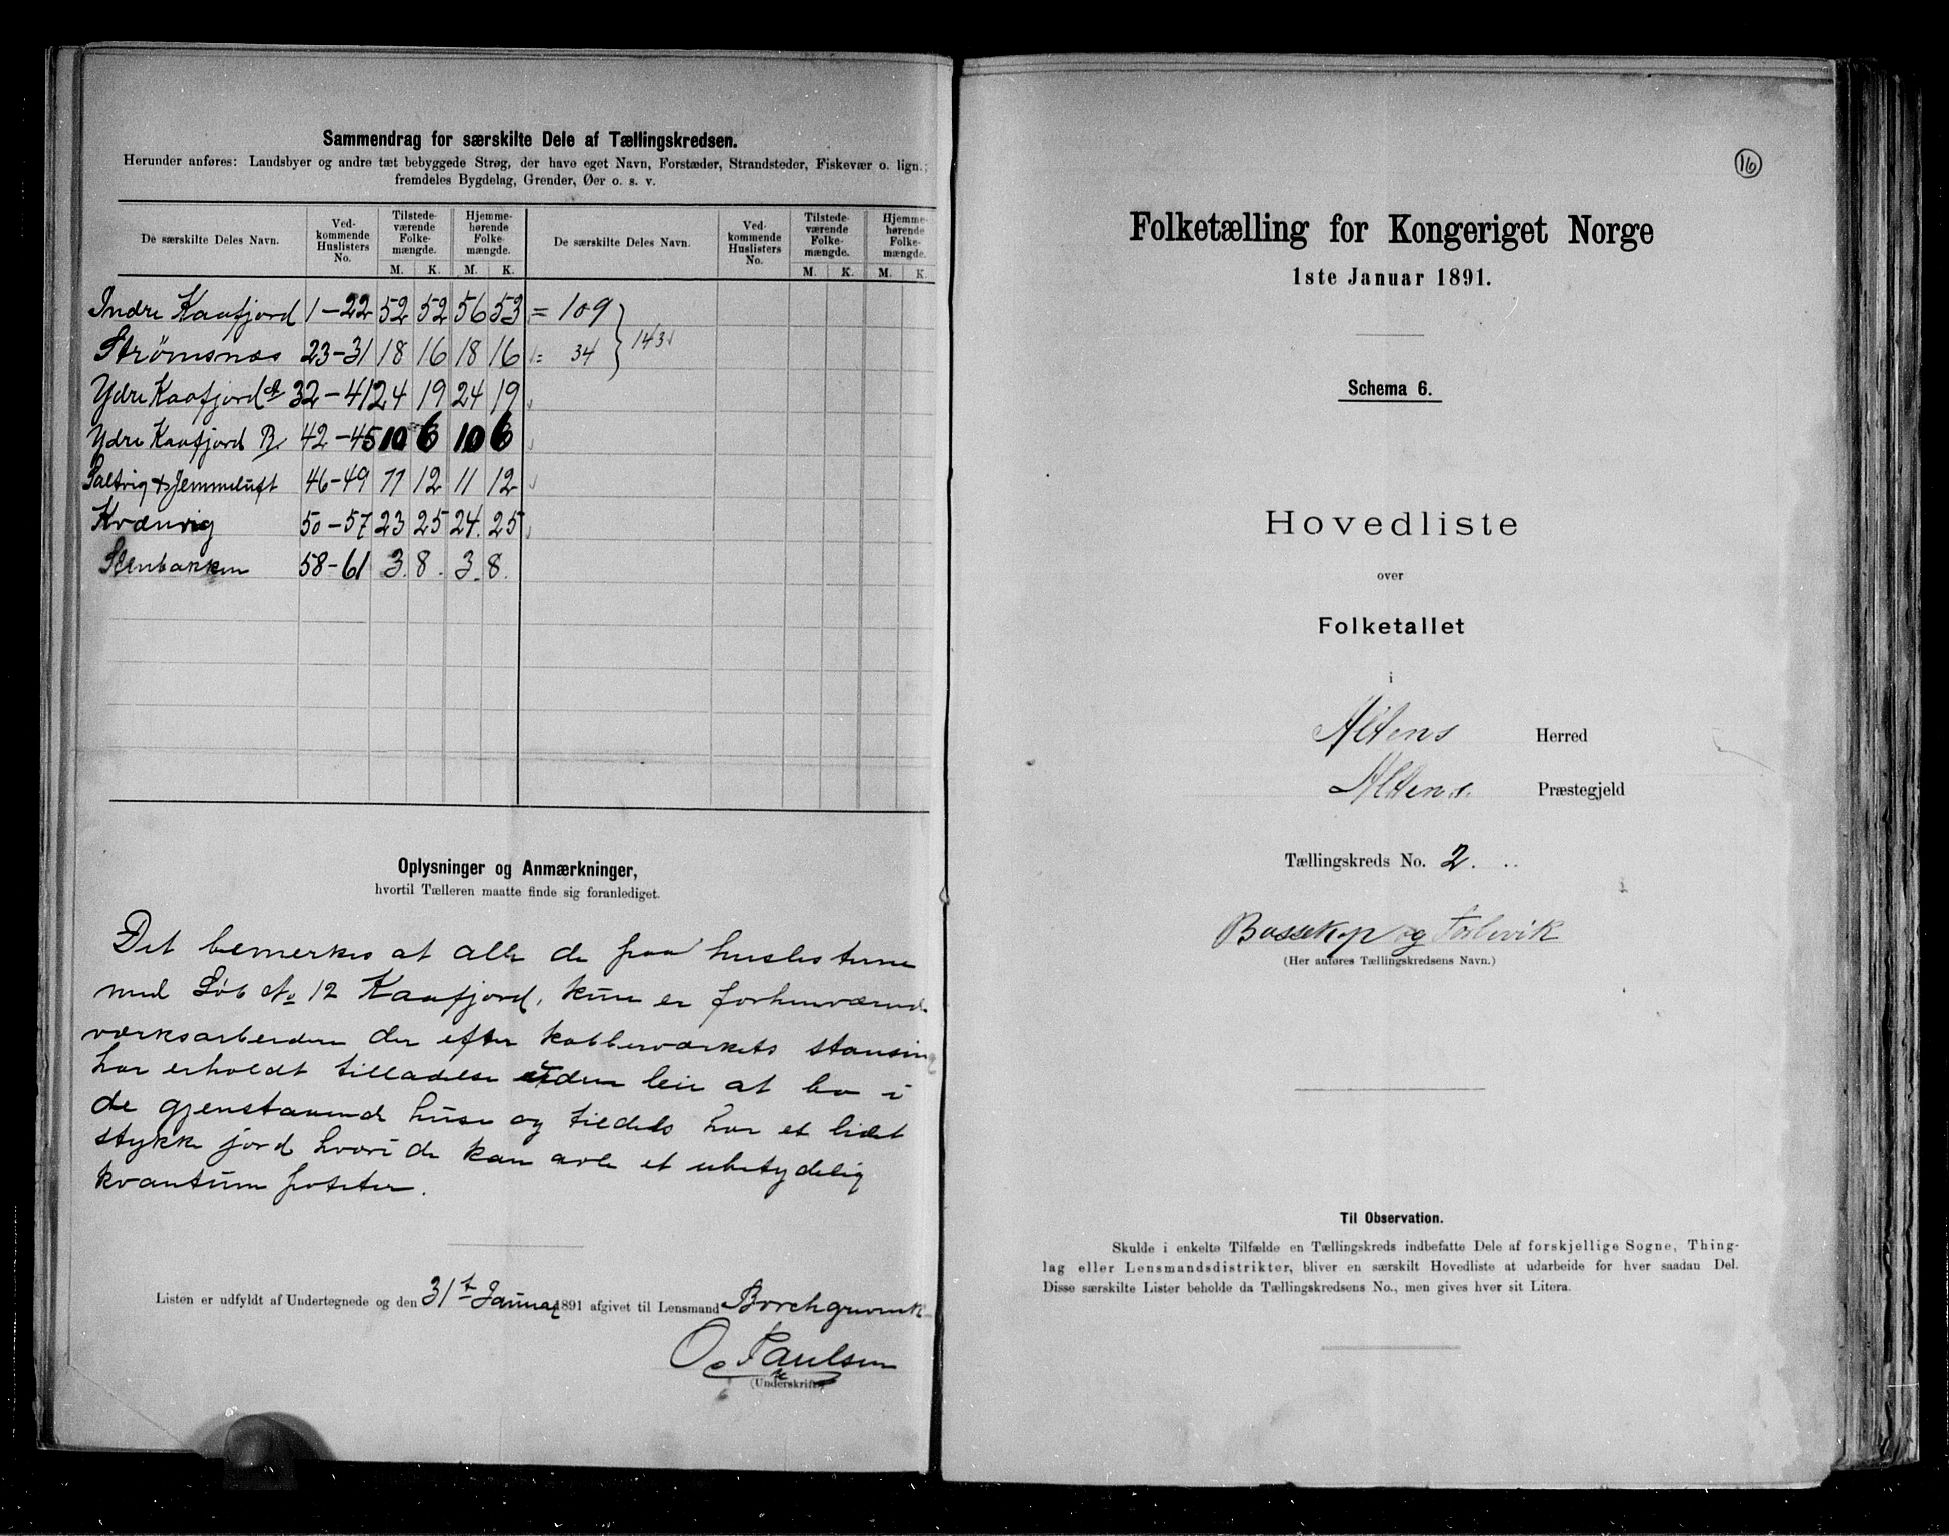 Sammendrag for særskilte Dele af Tællingskredsen.
Herunder anføres: Landsbyer og andre tæt bebyggede Strøg, der have eget Navn, Forstæder, Strandsteder, Fiskevær o. lign.;
fremdeles Bygdelag, Grender, Øer o. s. v.
De særskilte Deles Navn. Ved-kommende Huslisters No. Tilstede-værende Folke-mængde. Hjemme-hørende Folke-mængde. De særskilte Deles Navn. Ved-kommende Huslisters No. Tilstede-værende Folke-mængde. Hjemme-hørende Folke-mængde.
M. K. M. K. M. K. M. K.
Indre Kaafjord 1-22 52 52 56 53 = 109
Strømsnæs 23-31 18 16 18 16 = 34 } 143
Ydre Kaafjord A 32-41 24 19 24 19
Ydre Kaafjord B 42-45 10 6 10 6
Saltvig & Jemmeluft 46-49 11 12 11 12
Kvænvig 50-57 23 25 24. 25
Stenbakken 58-61 3. 8. 3. 8.
Oplysninger og Anmærkninger,
hvortil Tælleren maatte finde sig foranlediget.
Det bemerkes at alle de paa huslisterne
med Løb No 12 Kaafjord, kun er forhenværend
værksarbeidere der efter kobberværkets stansin
har erholdt tilladelse uden leie at bo i
de gjenstaaende huse og tildels har et lidet
stykke jord hvori de kan avle et ubetydelig
kvantum poteter.
Listen er udfyldt af Undertegnede og den 31t Januar 1891 afgivet til Lensmand Borchgrevink
O. Paulsen
(Underskrift)
16
Folketælling for Kongeriget Norge
1ste Januar 1891.
Schema 6.
Hovedliste
over
Folketallet
i
Altens Herred
Altens Præstegjeld
Tællingskreds No. 2.
Bossekop og
(Her anføres Tællingskredsens Navn.)
Til Observation.
Skulde i enkelte Tilfælde en Tællingskreds indbefatte Dele af forskjellige Sogne, Thing-
lag eller Lensmandsdistrikter, bliver en særskilt Hovedliste at udarbeide for hver saadan Del.
Disse særskilte Lister beholde da Tællingskredsens No., men gives hver sit Litera.